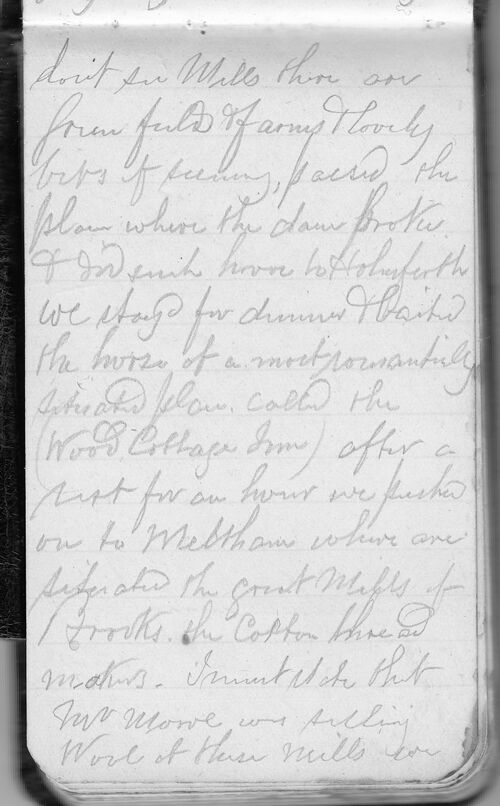 dont see Mills there are
Green fields & farms & lovely
bits of scenery, passed the
place where the dam broke
& did such havoc to Holmfirth
we stayd for dinner & baited
the horse at a most romantically
situated place called the
(Wood Cottage Inn) after a
rest for an hour we pushed
on to Meltham where are
situated the great Mills of
Brooks. the Cotton thread
makers. I must state that
Mr was selling
Wool at these Mills we